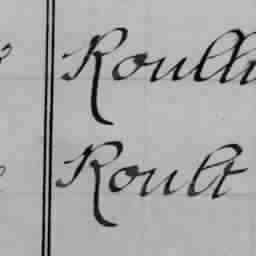 Roulli
Roult